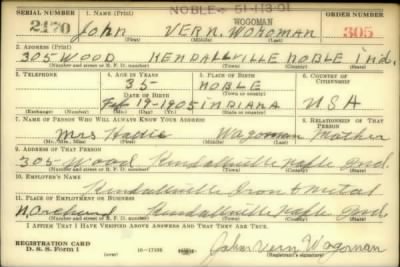 NOBLE 51-113-01
WOGOMAN
SERIAL NUMBER 1. NAME (Print) ORDER NUMBER
2170 JOHN VERN. WOGOMAN 305
(First) (Middle) (Last)
2. ADDRESS (Print)
305 WOOD KENDALLVILLE NOBLE Ind.
(Number and street or R. F. D. number) (Town) (County) (State)
3. TELEPHONE 4. AGE IN YEARS 5. PLACE OF BIRTH 6. COUNTRY OF CITIZENSHIP
35 NOBLE
DATE OF BIRTH (Town or county)
Feb 19-1905 INDIANA USA
(Exchange) (Number) (Mo.) (Day) (Yr.) (State or country)
7. NAME OF PERSON WHO WILL ALWAYS KNOW YOUR ADDRESS 8. RELATIONSHIP OF THAT PERSON
Mrs Wogoman Mother
(Mr., Mrs., Miss) (First) (Middle) (Last)
9. ADDRESS OF THAT PERSON
305 Wood Kendallville Noble Ind.
(Number and street or R. F. D. number) (Town) (County) (State)
10. EMPLOYER'S NAME
Kendallville Iron & Metal
11. PLACE OF EMPLOYMENT OR BUSINESS
N. Orchard Kendallville Noble Ind
(Number and street or R. F. D. number) (Town) (County) (State)
I AFFIRM THAT I HAVE VERIFIED ABOVE ANSWERS AND THAT THEY ARE TRUE.
REGISTRATION CARD
D. S. S. Form 1 John Vern Wogoman
(Registrant's signature)